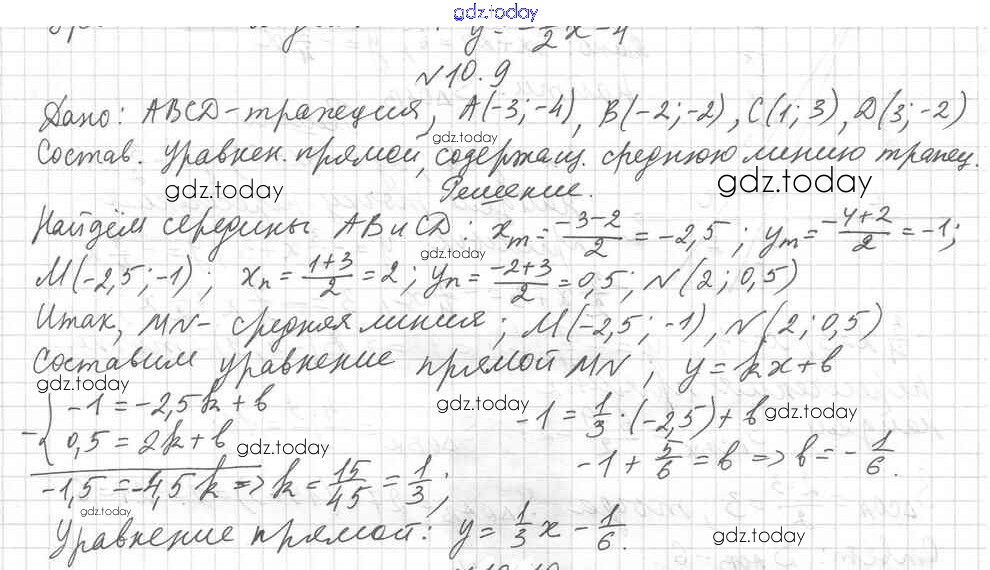 gdz.today
y = -1/2 x - 4
№10.9
Дано: ABCD - трапеция, A(-3; -4), B(-2; -2), C(1; 3), D(3; -2)
gdz.today
Состав. уравнен. прямой, содержащ. среднюю линию трапец.
gdz.today gdz.today
Решение.
Найдём середины AB и CD: x_m = (-3-2)/2 = -2,5; y_m = (-4+2)/2 = -1;
gdz.today
M(-2,5; -1); x_n = (1+3)/2 = 2; y_n = (-2+3)/2 = 0,5; N(2; 0,5)
Итак, MN - средняя линия; M(-2,5; -1), N(2; 0,5)
Составим уравнение прямой MN, y = kx + b
gdz.today gdz.today gdz.today
- { -1 = -2,5k + b -1 = 1/3 · (-2,5) + b
0,5 = 2k + b gdz.today -1 + 5/6 = b => b = -1/6.
-1,5 = -4,5k => k = 15/45 = 1/3;
gdz.today
Уравнение прямой: y = 1/3 x - 1/6. gdz.today